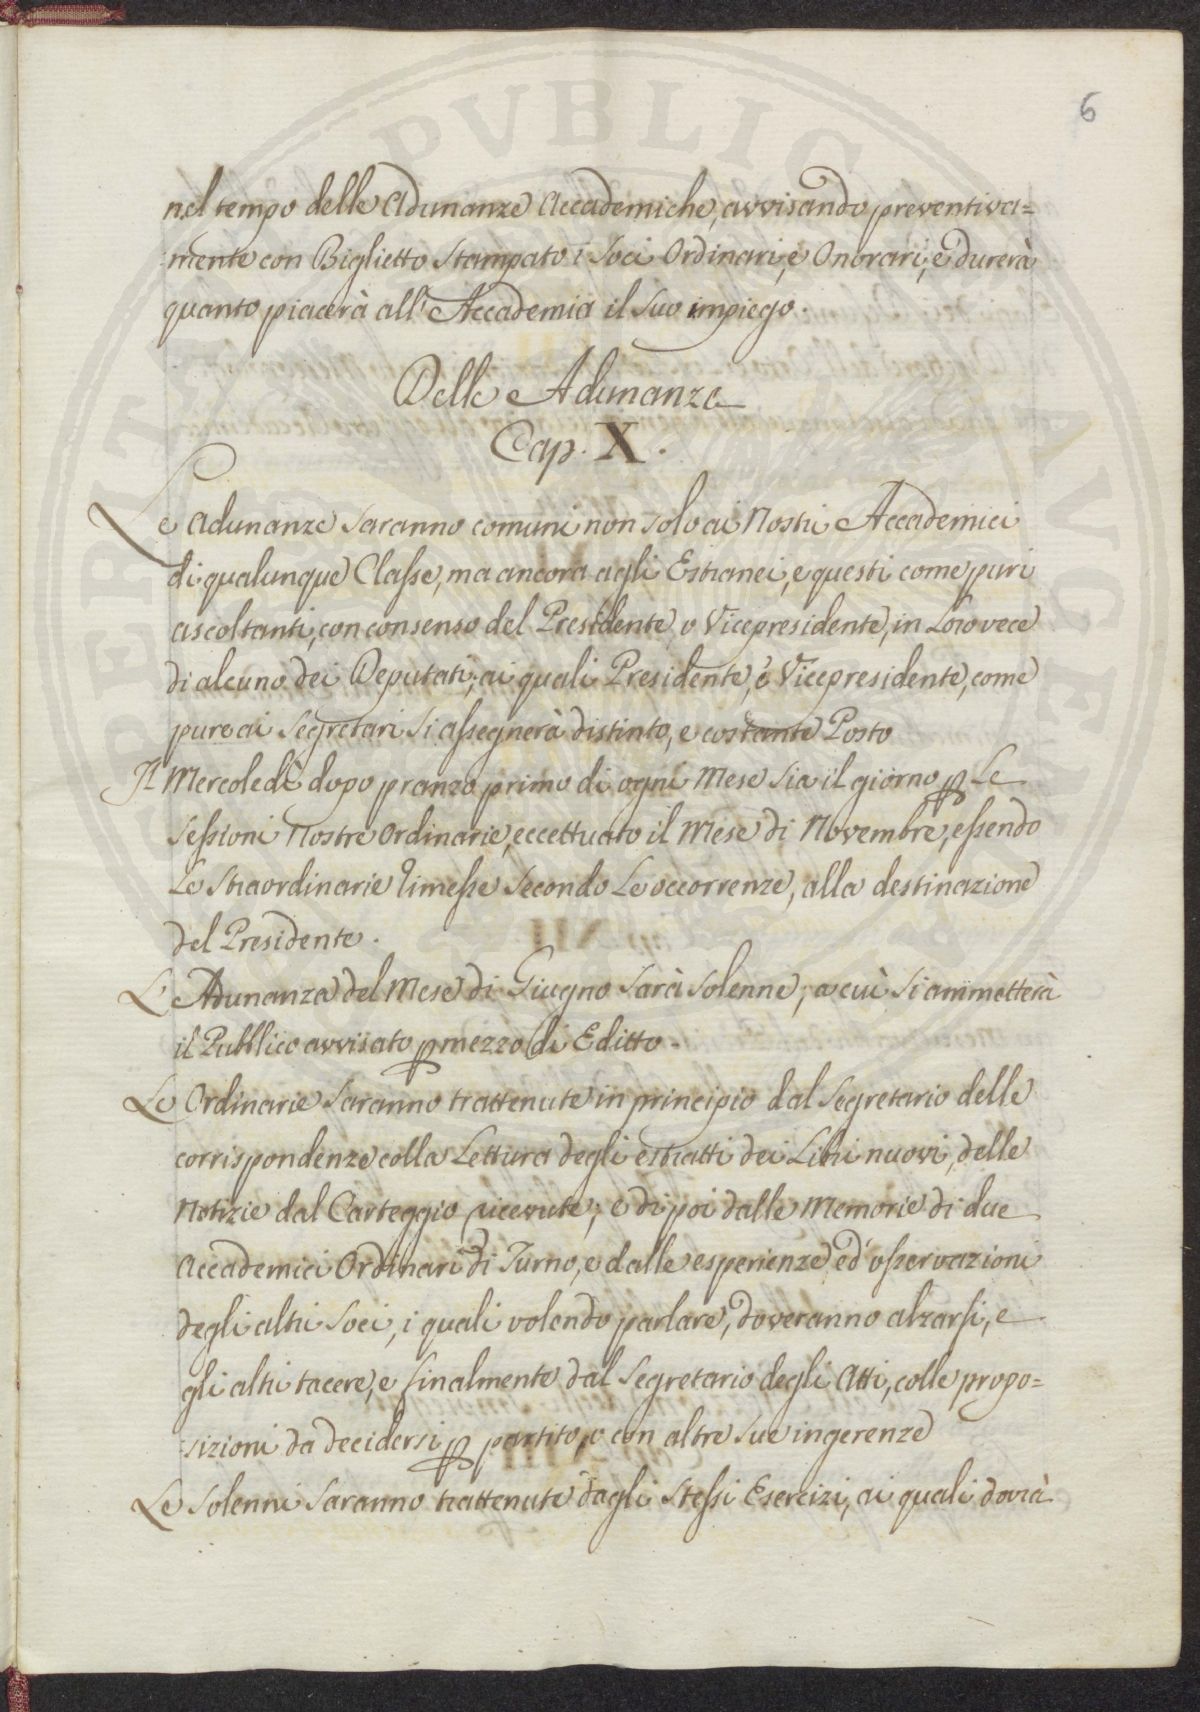 6
nel tempo delle Adunanze Accademiche, avvisando preventiva=
mente con Biglietto Stampato i Soci Ordinari, e Onorari, e durerà
quanto piacerà all'Accademia il suo impiego.
Delle Adunanze
Cap. X.
Le Adunanze saranno comuni non solo ai Nostri Accademici
di qualunque Classe, ma ancora agli Estranei, e questi come puri
ascoltanti, con consenso del Presidente, o Vicepresidente, in Loro vece
di alcuno dei Deputati; ai quali Presidente, e Vicepresidente, come
pure ai Segretari si assegnerà distinto, e costante Posto
Il Mercoledì dopo pranzo primo di ogni Mese sia il giorno ꝑ Le
Sessioni Nostre Ordinarie, eccettuato il Mese di Novembre, essendo
Le Straordinarie rimesse secondo Le occorrenze, alla destinazione
del Presidente.
L'Adunanza del Mese di Giugno sarà solenne, a cui si ammetterà
il Pubblico avvisato ꝑ mezzo di Editto.
Le Ordinarie saranno trattenute in principio dal Segretario delle
corrispondenze colla Lettura degli estratti dei Libri nuovi, delle
Notizie dal Carteggio ricevute; e di poi dalle Memorie di due
Accademici Ordinari di Turno, e dalle esperienze ed'osservazioni
degli altri Soci, i quali volendo parlare, doveranno alzarsi, e
gli altri tacere, e finalmente dal Segretario degli Atti, colle propo=
sizioni da decidersi ꝑ partito, o con altre sue ingerenze
Le Solenni saranno trattenute dagli Stessi Esercizi, ai quali dovrà